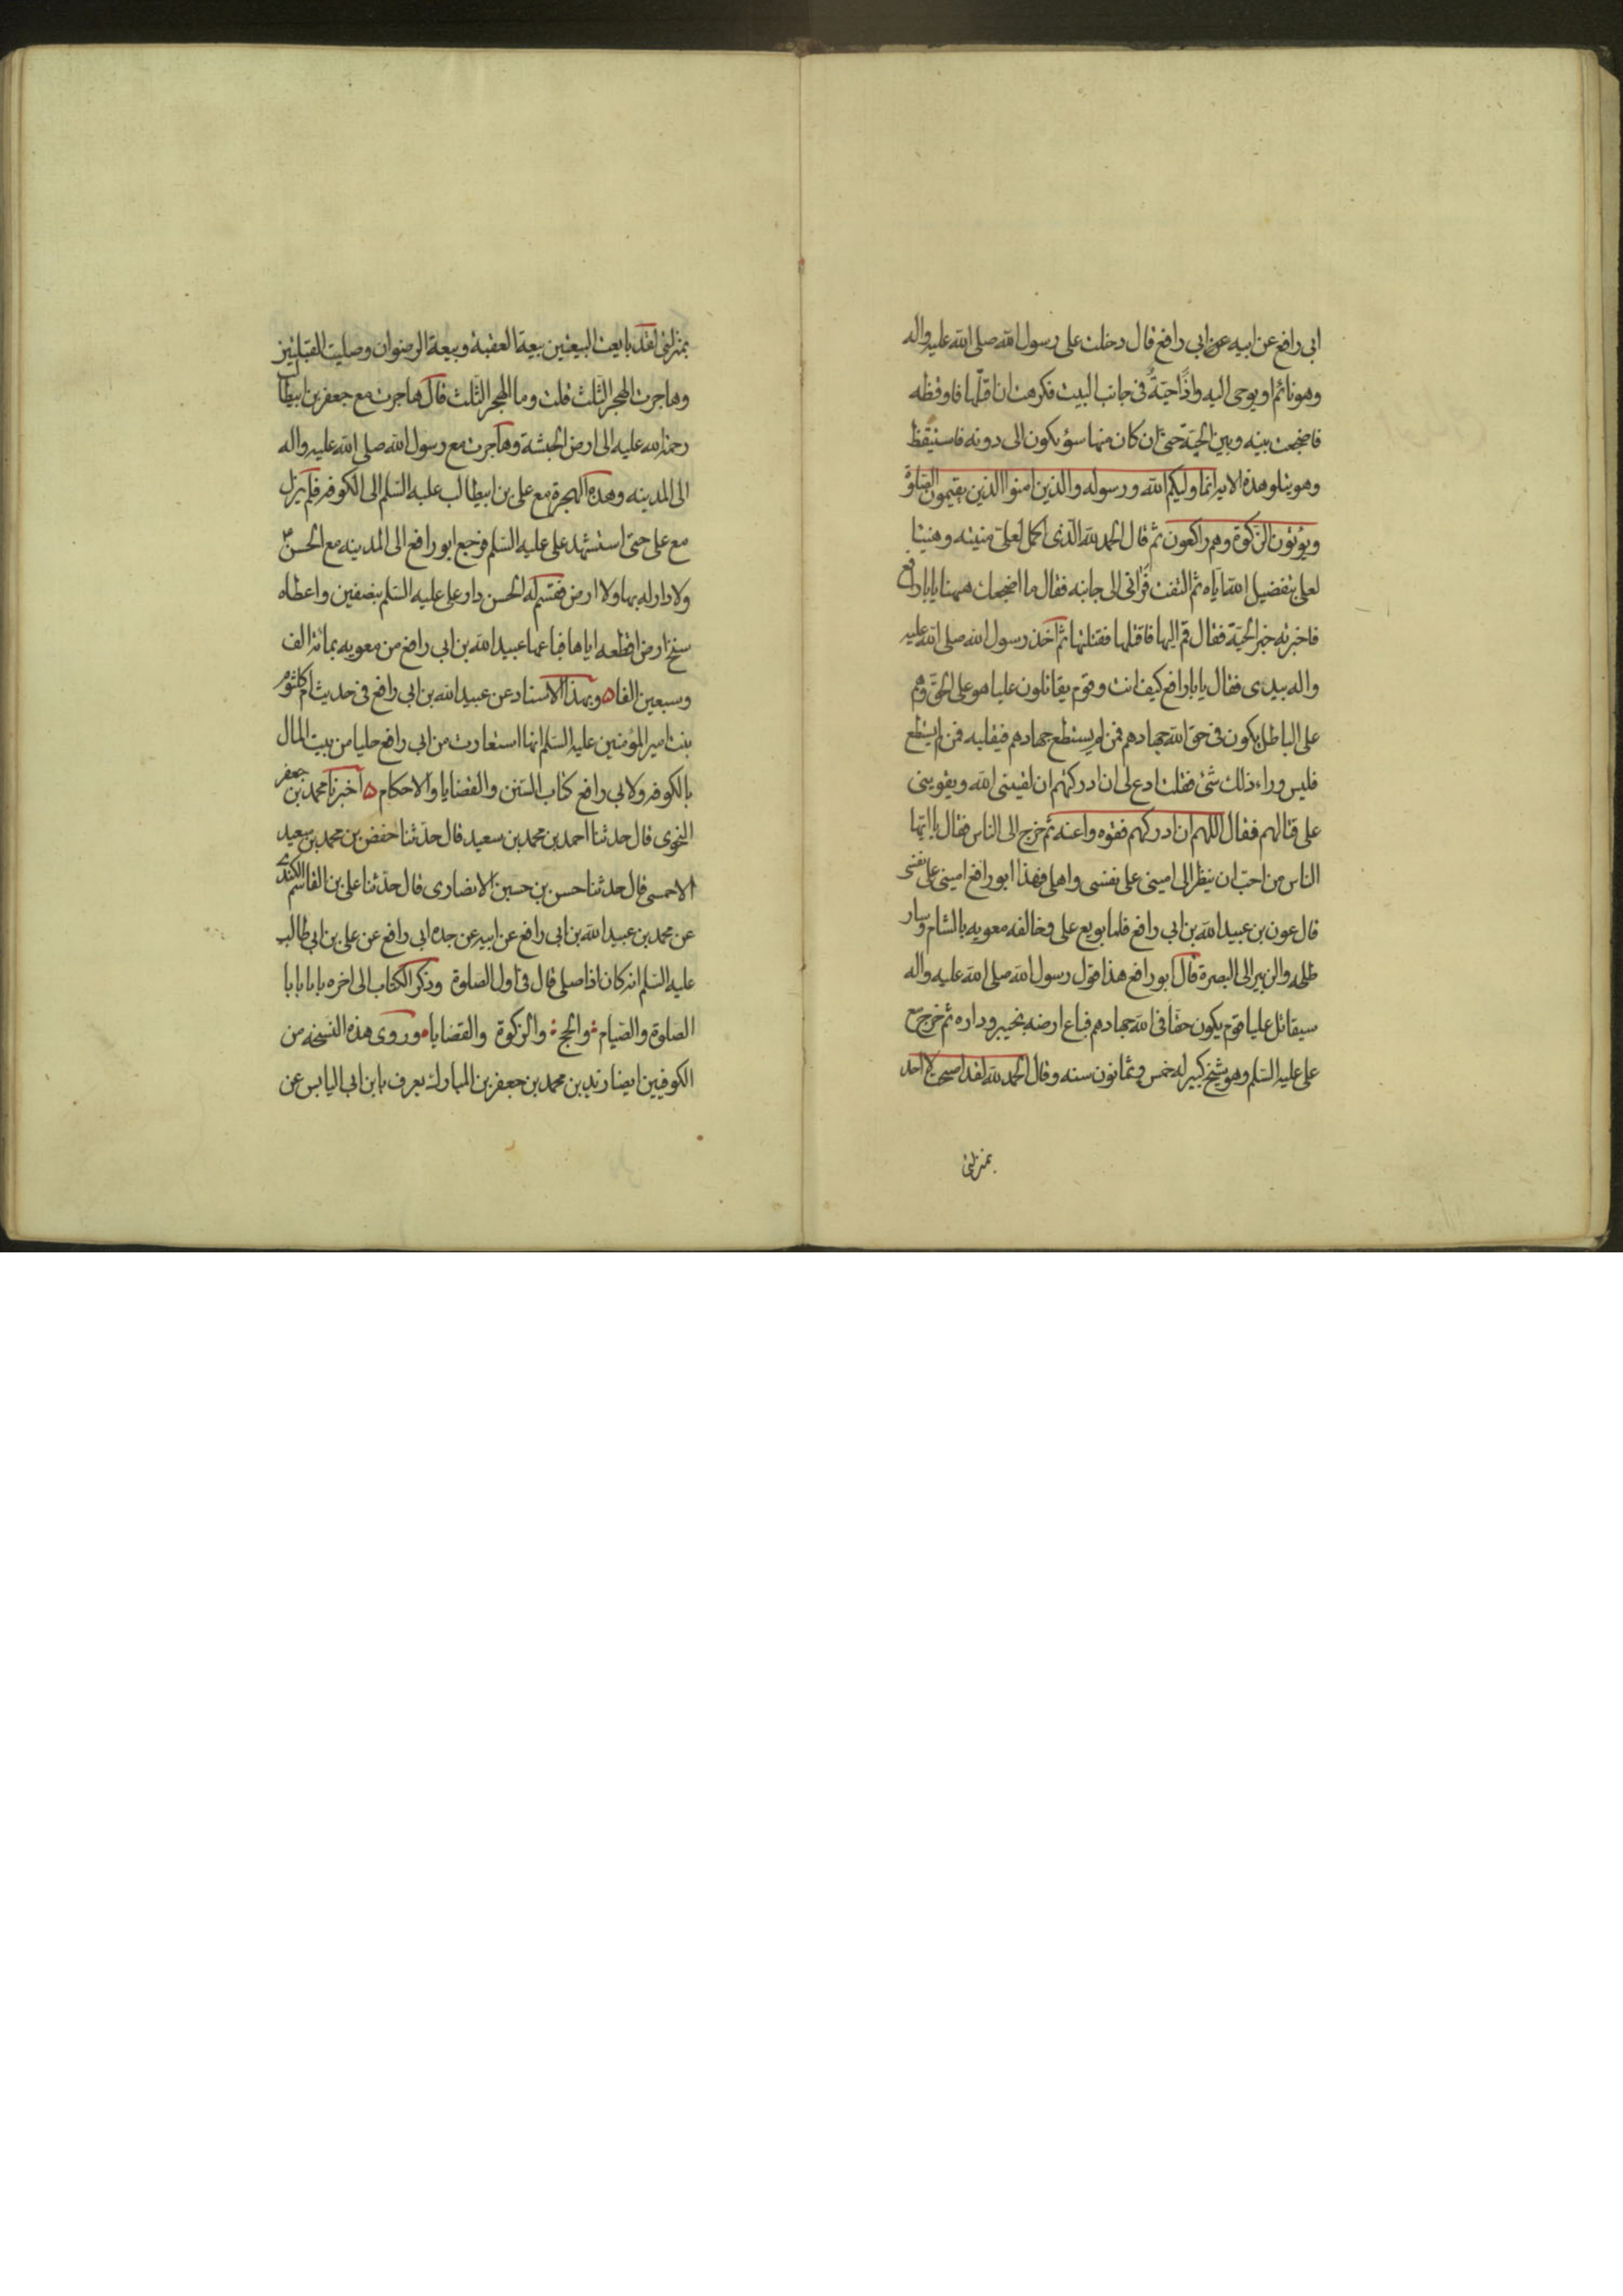 ابى رافع عن ابيه عن ابى رافع قال دخلت على رسول الله صلى الله عليه واله
وهو نائم او يوحى اليه واذا حيّة فى جانب البيت فكرهت ان اقتلها فاوقظه
فاضجعت بينه وبين الحيّة حتى ان كان منها سوء يكون الى دونه فاستيقظ
وهو يتلو هذه الاية انما وليكم الله ورسوله والذين امنوا الذين يقيمون الصلوة
ويؤتون الزكوة وهم راكعون ثم قال الحمد لله الذى اكمل لعلى منيته وهنيئا
لعلى بتفضيل الله اياه ثم التفت فرانى الى جانبه فقال ما اضجعك ههنا يابا رافع
فاخبرته خبر الحيّة فقال قم اليها فاقتلها فقتلتها ثم اخذ رسول الله صلى الله عليه
واله بيدى فقال يابا رافع كيف انت وقوم يقاتلون عليا هو على الحق وهم
على الباطل يكون فى حق الله جهادهم فمن لم يستطع جهادهم فبقلبه فمن لم يستطع
فليس وراء ذلك شئ فقلت ادع لى ان ادركتهم ان يعيننى الله ويقوينى
على قتالهم فقال اللهم ان ادركهم فقوه واعنه ثم خرج الى الناس فقال يا ايها
الناس من احب ان ينظر الى امينى على نفسى واهلى فهذا ابو رافع امينى على نفسى
قال عون بن عبيد الله بن ابى رافع فلما بويع على وخالفه معويه بالشام وسار
طلحه والزبير الى البصرة قال ابو رافع هذا قول رسول الله صلى الله عليه واله
سيقاتل عليا قوم يكون حقا فى الله جهادهم فباع ارضه بخيبر وداره ثم خرج مع
على عليه السلم وهو شيخ كبير له خمس وثمانون سنه وقال الحمد لله لقد اصبحت لا احد
بمنزلتى
بمنزلتى لقد بايعت البيعتين بيعة العقبة وبيعة الرضوان وصليت القبلتين
وهاجرت الهجر الثلث قلت وما الهجر الثلث قال هاجرت مع جعفر بن ابيطالب
رحمة الله عليه الى ارض الحبشة وهاجرت مع رسول الله صلى الله عليه واله
الى المدينه وهذه الهجرة مع على بن ابيطالب عليه السلم الى الكوفه فلم يزل
مع على حتى استشهد على عليه السلم فرجع ابو رافع الى المدينه مع الحسن
ولا دار له بها ولا ارض فقسم له الحسن دار على عليه السلم بنصفين واعطاه
سنخ ارض اقطعه اياها فباعها عبيد الله بن ابى رافع من معويه بمائة الف
وسبعين الفا وبهذا الاسناد عن عبيد الله بن ابى رافع فى حديث ام كلثوم
بنت امير المؤمنين عليه السلم انها استعارت من ابى رافع حليا من بيت المال
بالكوفه ولابى رافع كتاب السنن والقضايا والاحكام اخبرنا محمد بن جعفر
النحوى قال حدثنا احمد بن محمد بن سعيد قال حدثنا حفص بن محمد بن سعيد
الاحمسى قال حدثنا حسن بن حسين الانصارى قال حدثنا على بن القاسم الكندى
عن محمد بن عبيد الله بن ابى رافع عن ابيه عن جده ابى رافع عن على بن ابى طالب
عليه السلم انه كان اذا صلى قال فى اول الصلوة وذكر الكتاب الى اخره بابا بابا
الصلوة والصيام والحج والزكوة والقضايا وروى هذه النسخه من
الكوفيين ايضا زيد بن محمد بن جعفر بن المبارك يعرف بابن ابى الياس عن